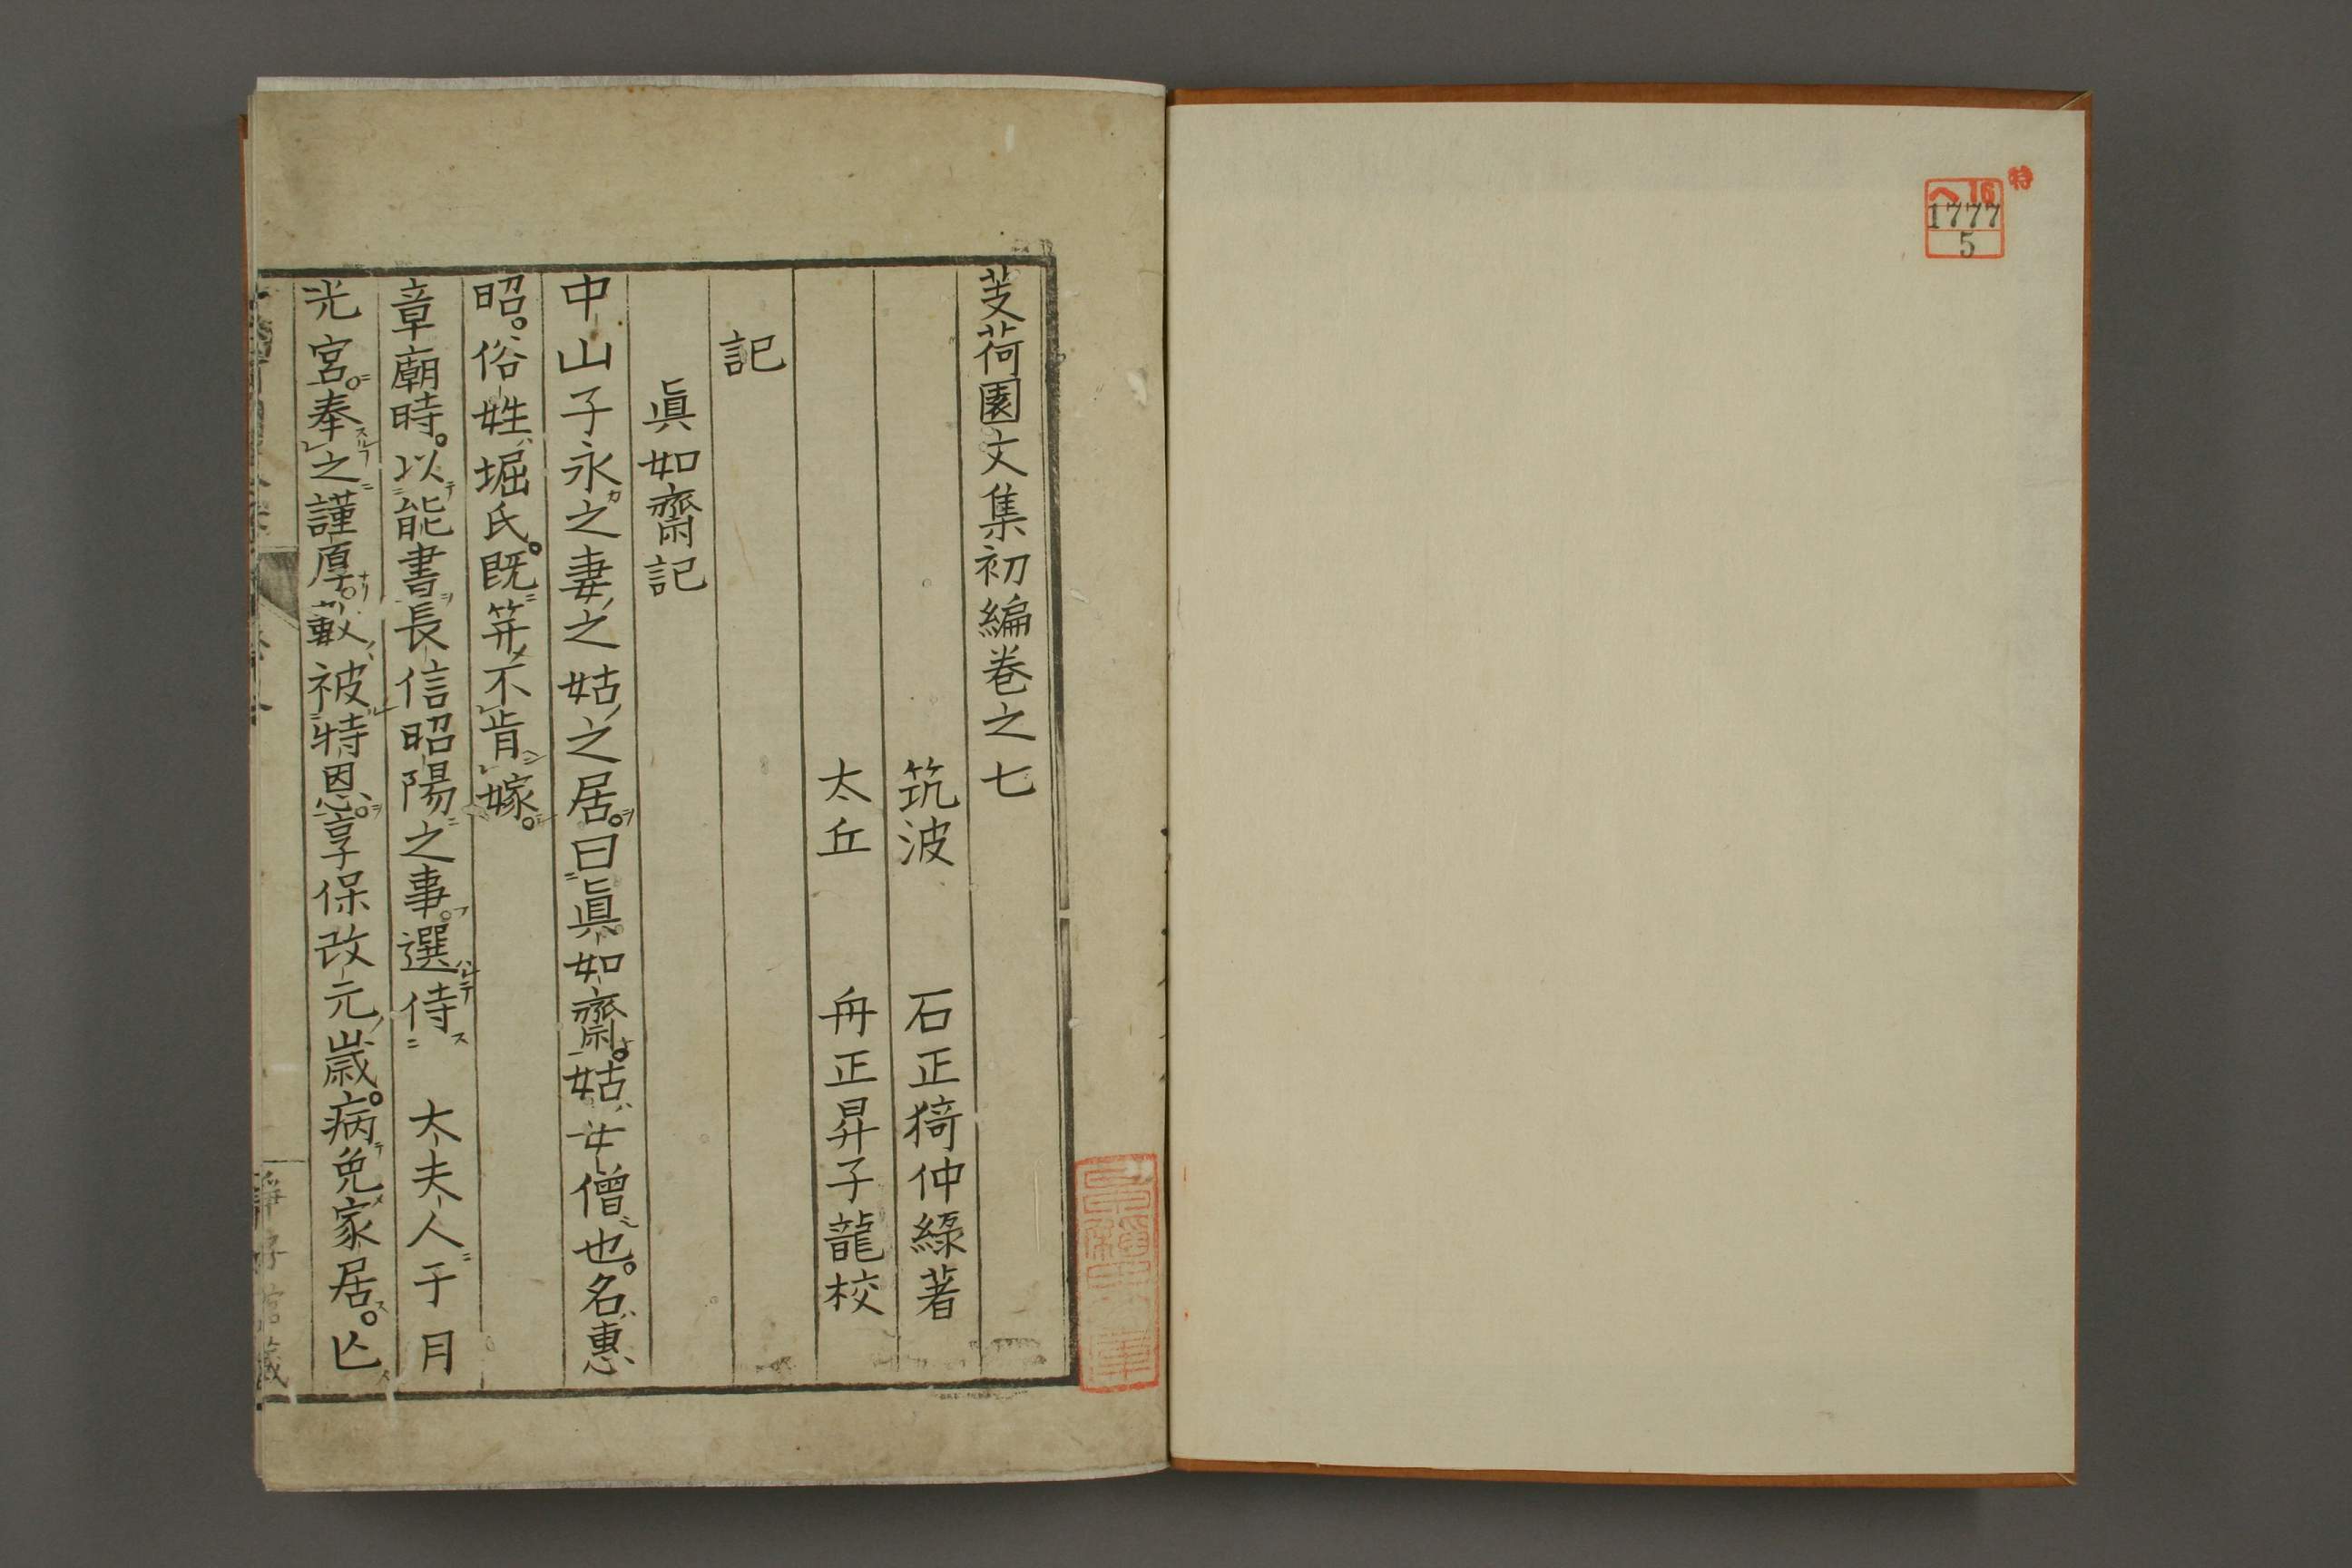 特
ヘ16
1777
5
芰荷園文集初編卷之七
筑波 石正猗仲綠著
太丘 舟正昇子龍校
記
眞如齋記
中山子永之妻之姑之居。曰眞如齋。姑女僧也。名惠
昭。俗姓堀氏。既筓不肯嫁。
章廟時。以能書長信昭陽之事。選侍 大夫人于月
光宮。奉之謹厚。數被特恩。享保改元歲。病免家居。亾